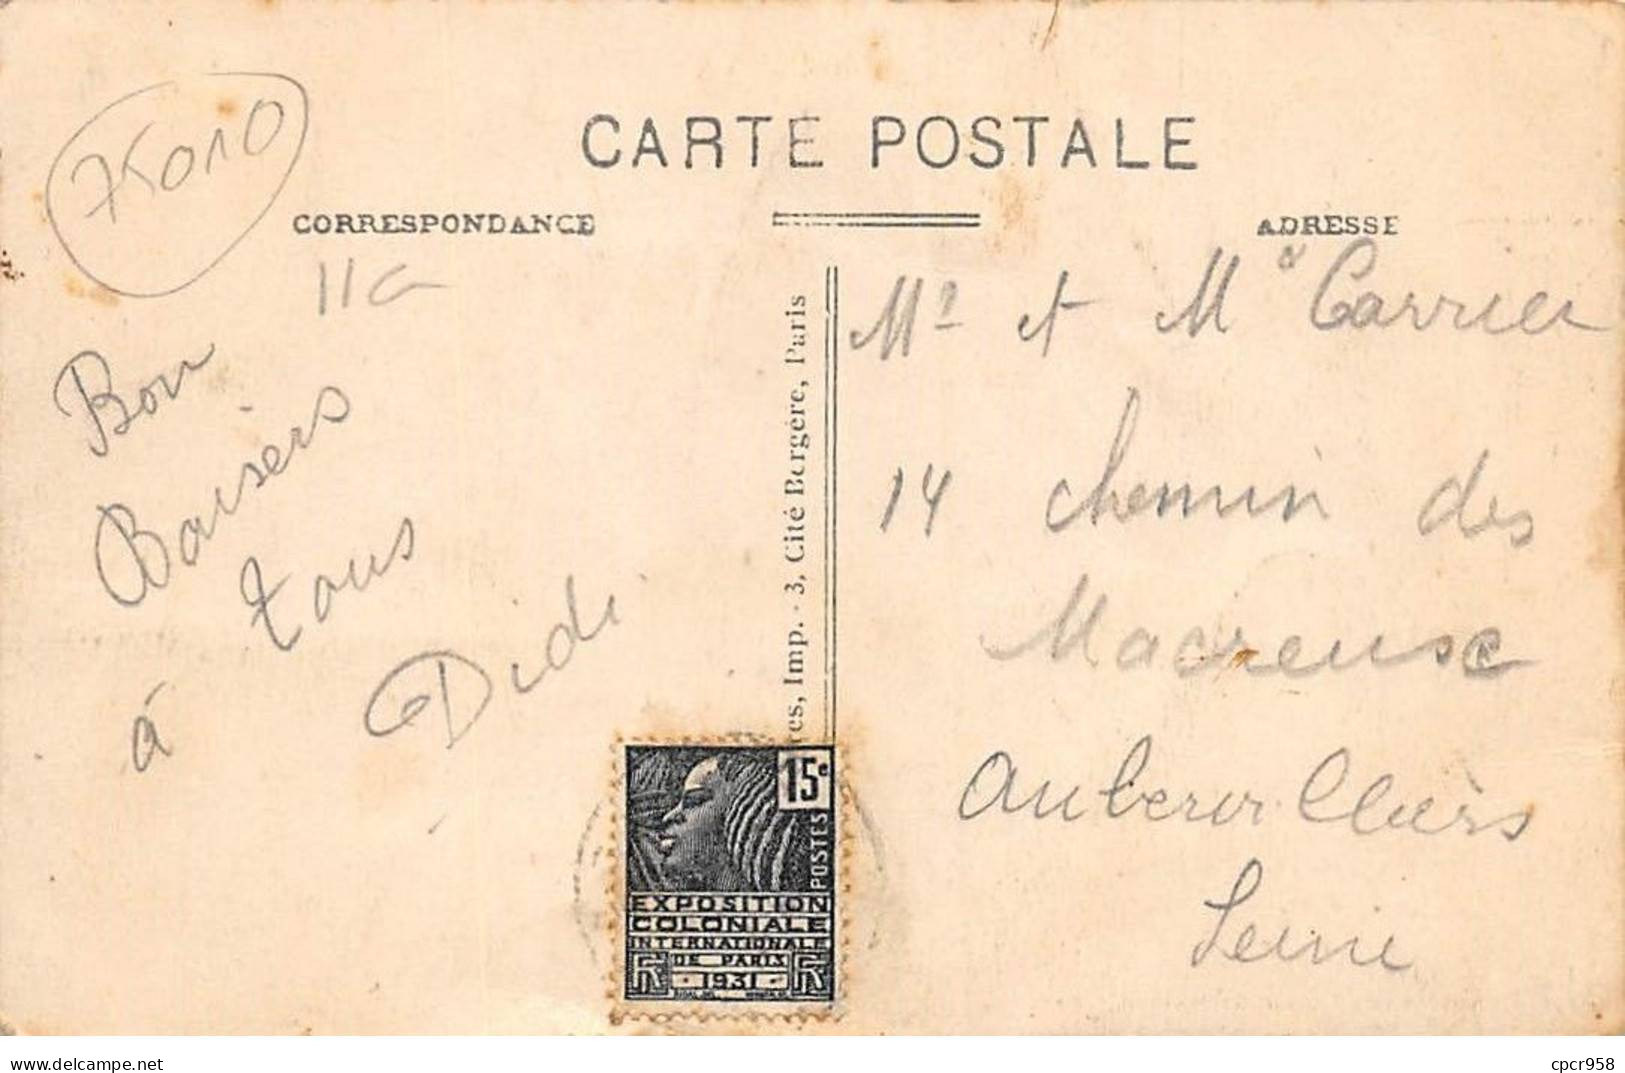 CARTE POSTALE
75010
CORRESPONDANCE
ADRESSE
11G
Bon
Baisers
à tous
Didi
res, Imp. - 3, Cité Bergère, Paris
Mr et Me Carrier
14 chemin des
Macreuse
Aubervilliers
Seine
15c
POSTES
EXPOSITION
COLONIALE
INTERNATIONALE
DE PARIS
1931
RF
RF
delcampe.net
cpcr958